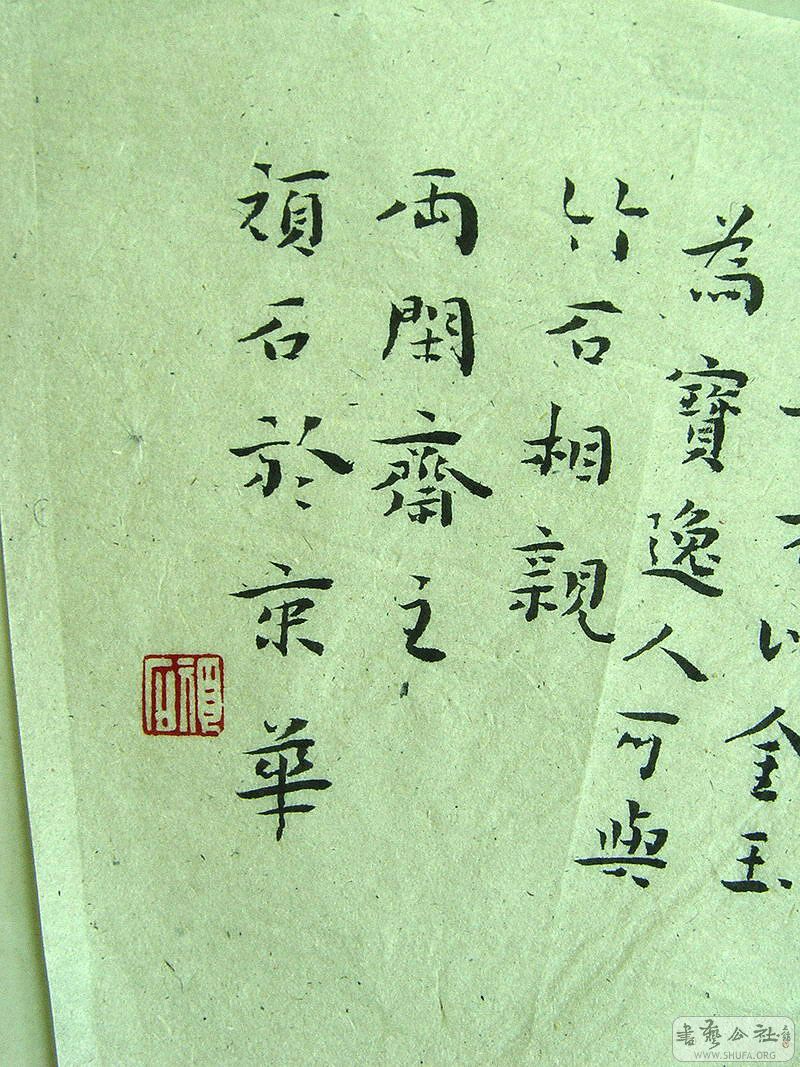 金玉
為寶逸人可與
竹石相親
両閑齋主
禎石於京華
禎石
書藝公社
WWW.SHUFA.ORG